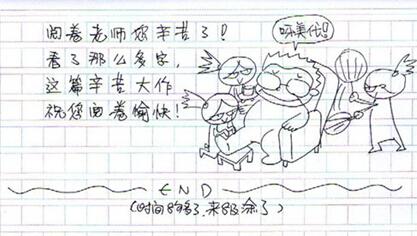 阅卷老师您辛苦了!
看了那么多字,
这篇辛苦大作
祝您阅卷愉快!
呀美代!
END
(时间够多了,来
涂了)